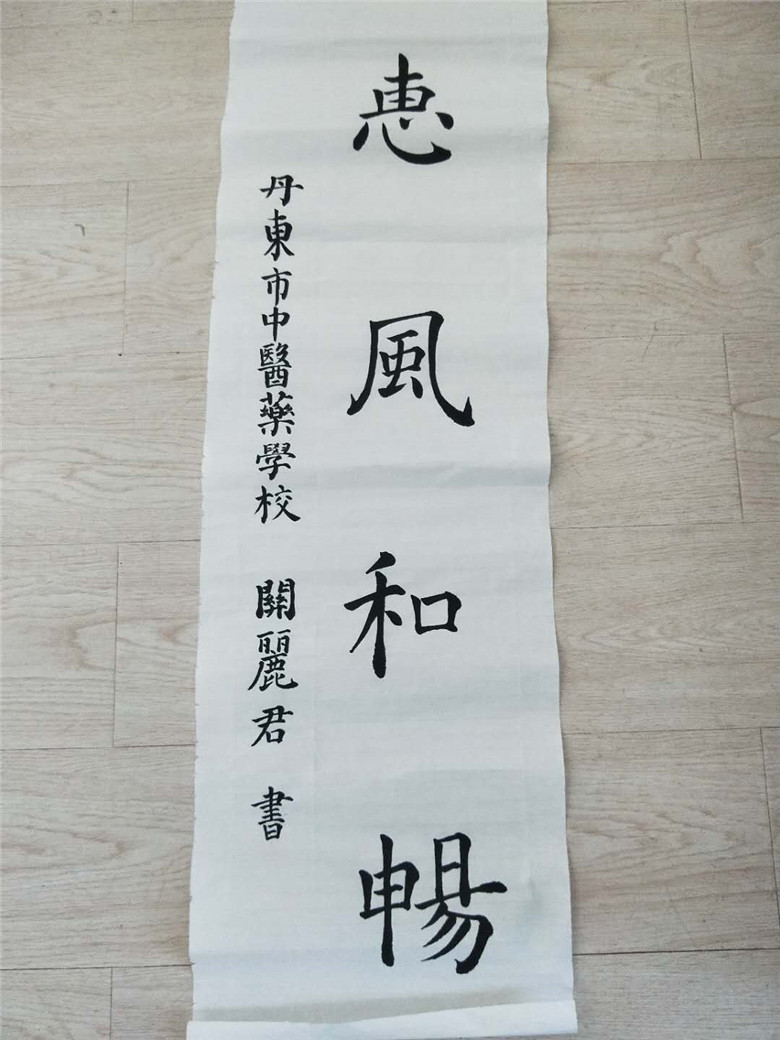 惠風和暢
丹東市中醫藥學校 關麗君 書